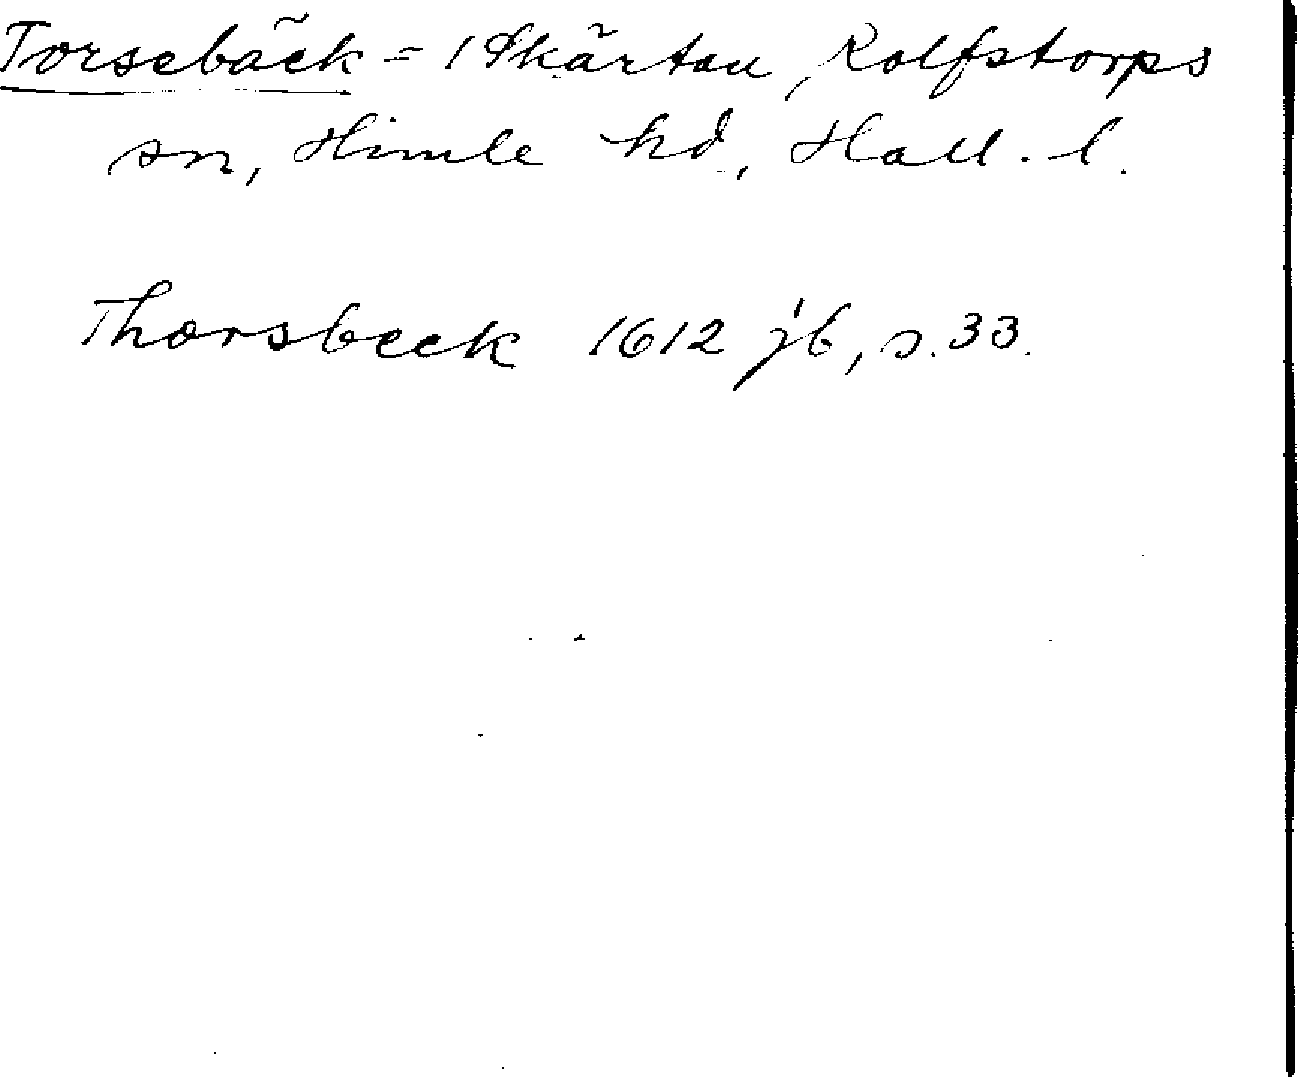 Torsebäck = 1 Skärtan, Rolfstorps
sn, Himle hd, Hall. l.
Thorsbeck 1612 jb, s. 33.